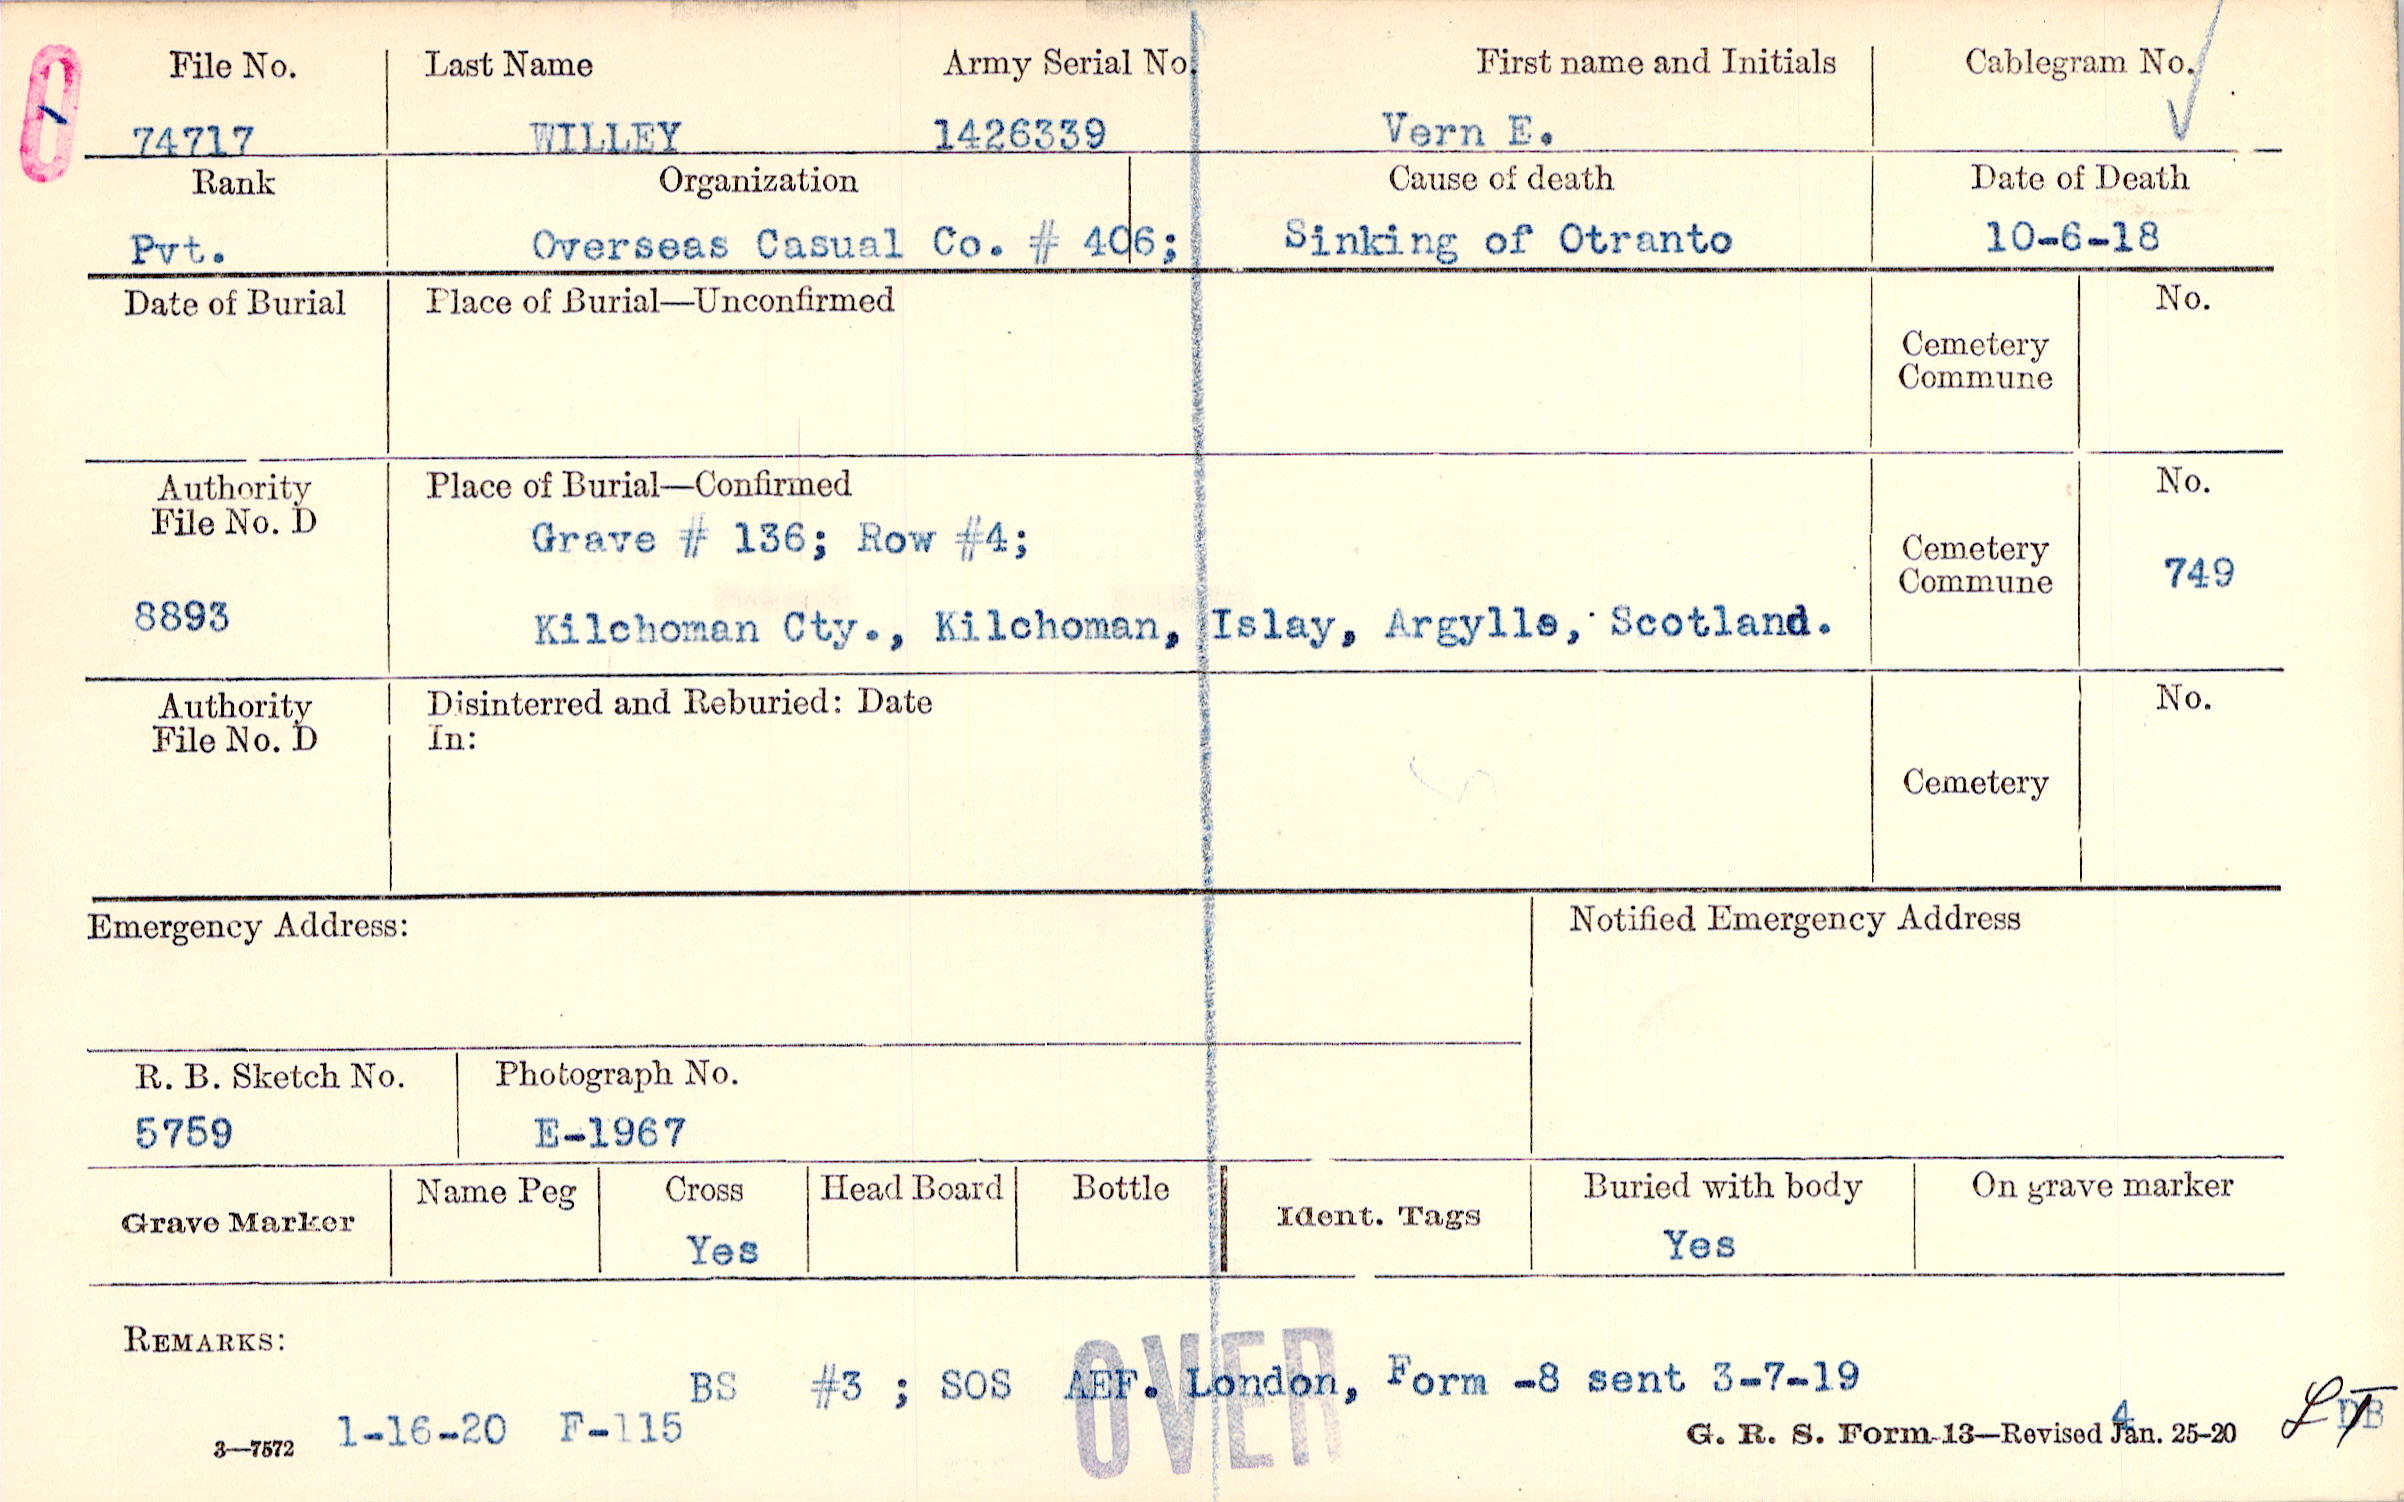 File No. Last Name Army Serial No. First name and Initials Cablegram No.
74717 WILLEY 1426339 Vern E.
Rank Organization Cause of death Date of Death
Pvt. Overseas Casual Co. # 406; Sinking of Otranto 10-6-18
Date of Burial Place of Burial—Unconfirmed No.
Cemetery
Commune
Authority Place of Burial—Confirmed No.
File No. D
Grave # 136; Row #4;
Cemetery
Commune 749
8893 Kilchoman Cty., Kilchoman, Islay, Argylle, Scotland.
Authority Disinterred and Reburied: Date No.
File No. D In:
Cemetery
Emergency Address: Notified Emergency Address
R. B. Sketch No. Photograph No.
5759 E-1967
Name Peg Cross Head Board Bottle Buried with body On grave marker
Grave Marker Ident. Tags
Yes Yes
REMARKS:
OVER
BS #3 ; SOS AEF. London, Form -8 sent 3-7-19
1-16-20 F-115
3—7572 G. R. S. Form 13—Revised Jan. 25-20
4
DB